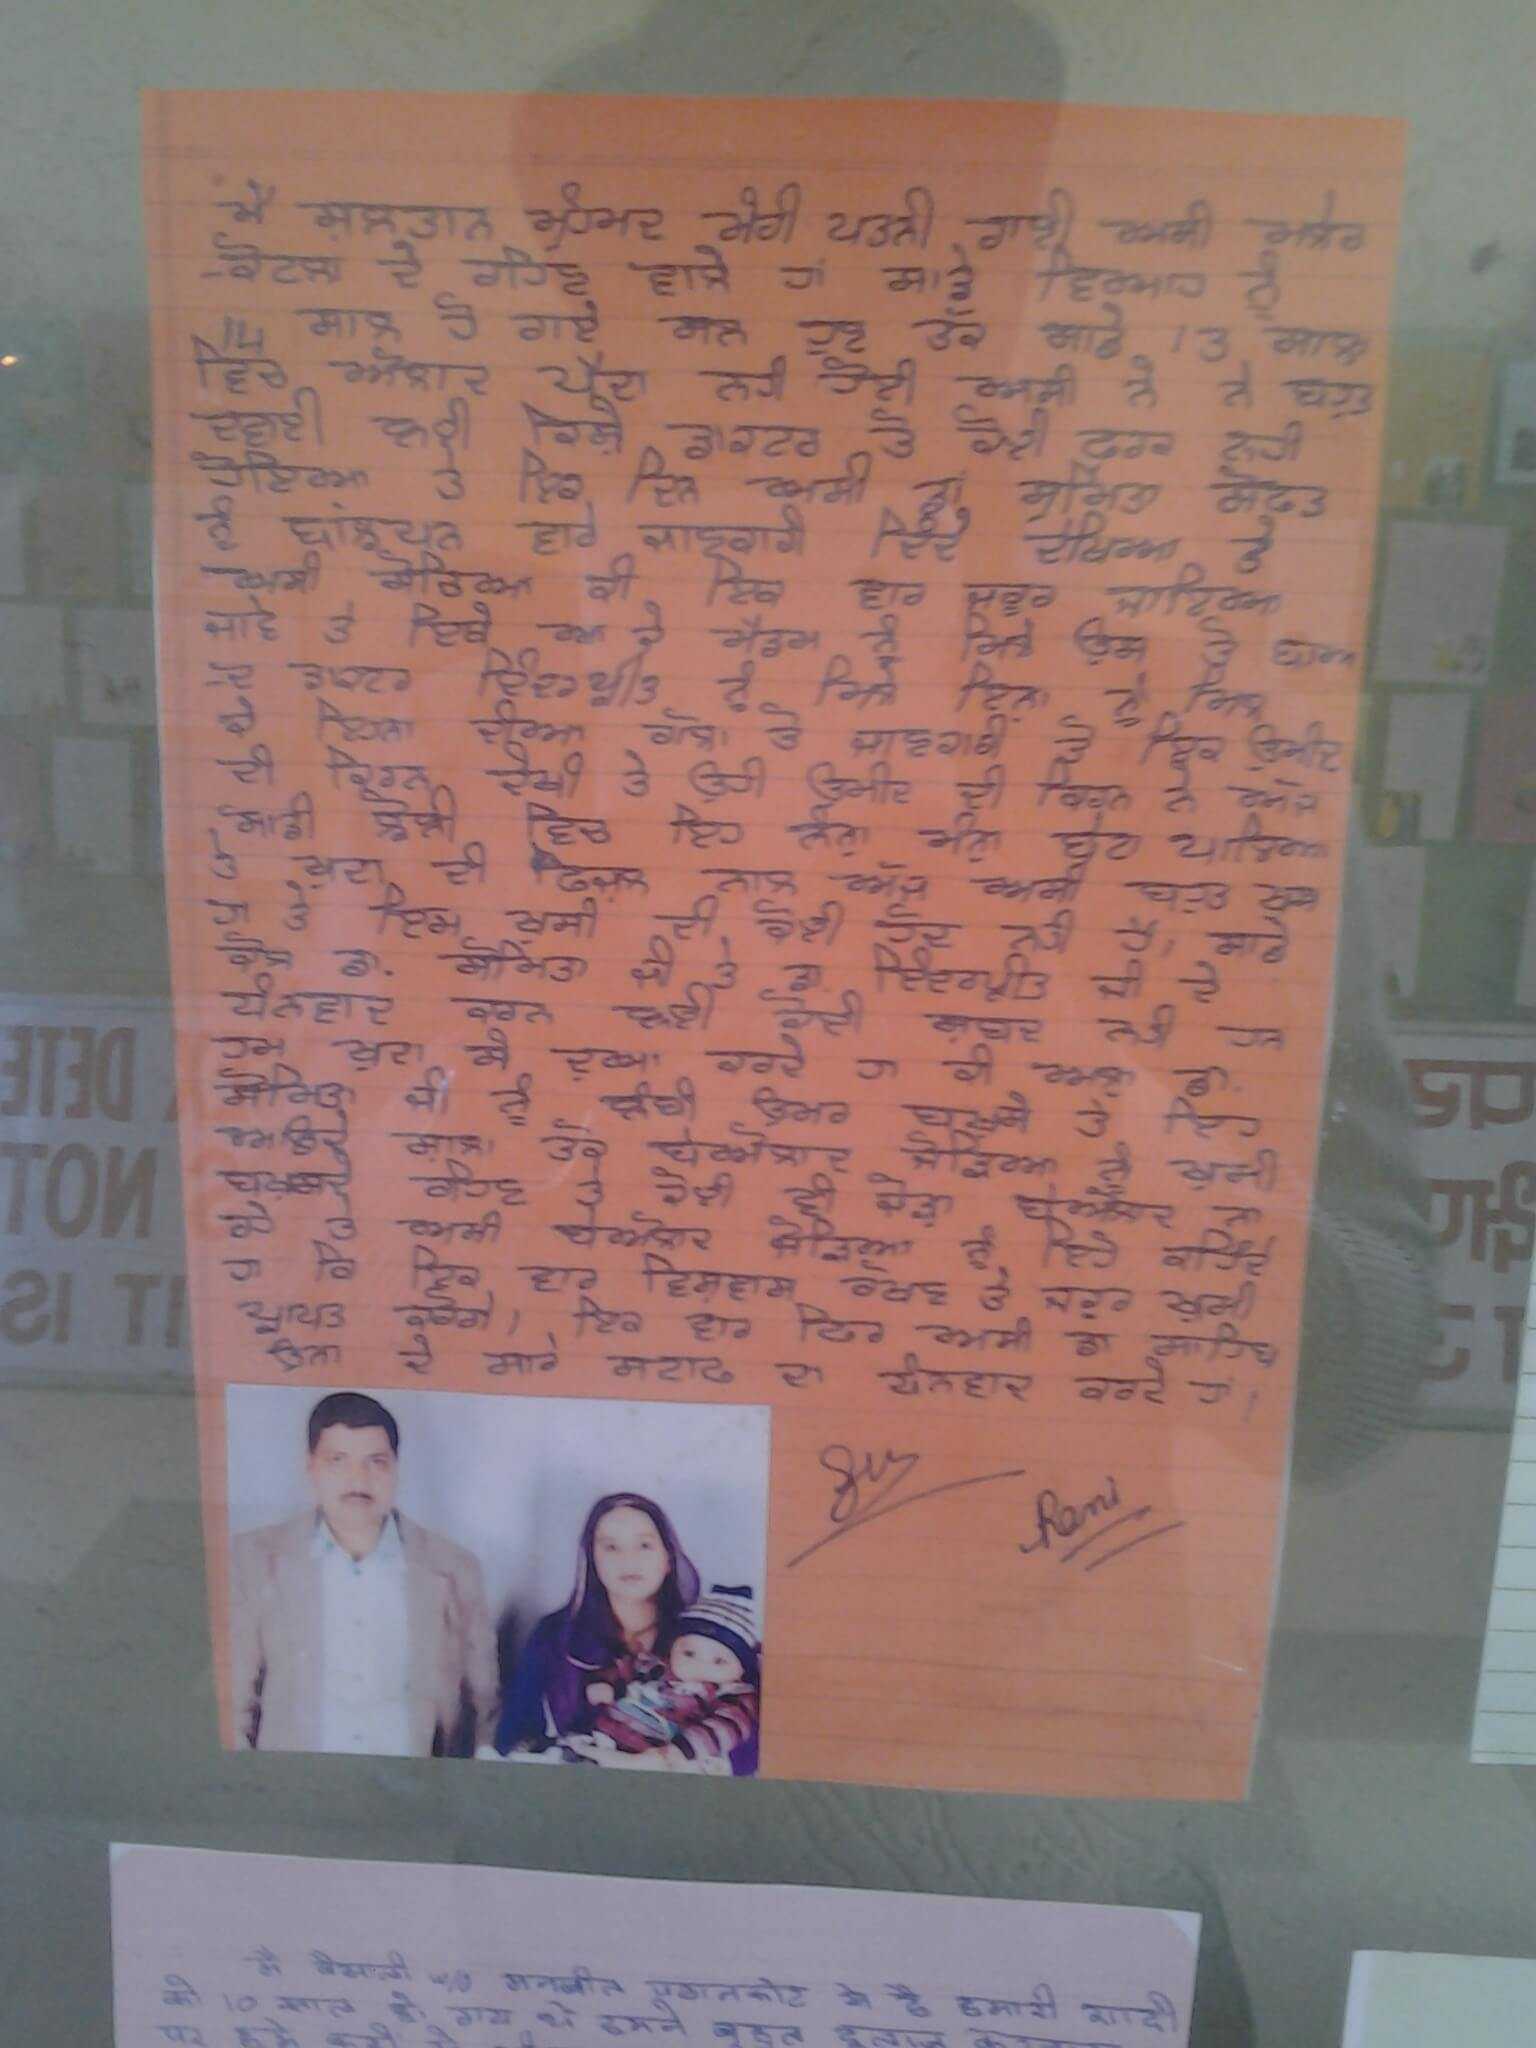 ਮੈਂ ਸੁਲਤਾਨ ਮੁਹੰਮਦ ਮੇਰੀ ਪਤਨੀ ਰਾਣੀ ਅਸੀ ਮਲੇਰ
ਕੋਟਲਾ ਦੇ ਰਹਿਣ ਵਾਲੇ ਹਾਂ ਸਾਡੇ ਵਿਆਹ ਨੂੰ
ਸਾਲ ਹੋ ਗਏ ਸਨ ਹੁਣ ਤੱਕ ਸਾਡੇ 13 ਸਾਲ
ਵਿੱਚ ਔਲਾਦ ਪੈਦਾ ਨਹੀ ਹੋਈ ਅਸੀ ਨੇ ਬਹੁਤ
ਦਵਾਈ ਲਈ ਕਿਸੇ ਡਾਕਟਰ ਤੋ ਕੋਈ ਫਰਕ ਨਹੀ
ਪੈਇਆ ਤੇ ਇਕ ਦਿਨ ਅਸੀ ਡਾਂ ਸੁਮਿਤਾ ਸੋਫਤ
ਨੂੰ ਬਾਂਝਪਨ ਵਾਰੇ ਜਾਣਕਾਰੀ ਦਿੰਦੇ ਦੇਖਿਆ ਤੇ
ਅਸੀ ਸੋਚਿਆ ਕੀ ਇਕ ਵਾਰ ਜਰੂਰ ਜਾਇਆ
ਜਾਵੇ ਤੇ ਇਥੇ ਆ ਕੇ ਮੈਡਮ ਨੂੰ ਮਿਲੇ ਉਸ ਤੋ ਬਾਅਦ
ਡਾਕਟਰ ਇੰਦਰਪ੍ਰੀਤ ਨੂੰ ਮਿਲੇ ਇਨ੍ਹਾ ਨੂੰ ਮਿਲ
ਕੇ ਇਹਨਾ ਦੀਆ ਗੱਲਾ ਤੇ ਜਾਣਕਾਰੀ ਤੋ ਇਕ ਉਮੀਦ
ਦੀ ਕਿਰਨ ਦੇਖੀ ਤੇ ਉਹੀ ਉਮੀਦ ਦੀ ਕਿਰਨ ਨੇ ਅੱਜ
ਸਾਡੀ ਝੋਲੀ ਵਿਚ ਇਹ ਨੰਨਾ ਮੰਨਾ ਬੇਟਾ ਪਾਇਆ
ਤੇ ਖੁਦਾ ਦੀ ਫਿਜ਼ਲ ਨਾਲ ਅੱਜ ਅਸੀ ਬਹੁਤ ਖੁਸ਼
ਹਾਂ ਤੇ ਇਸ ਖੁਸ਼ੀ ਦੀ ਕੋਈ ਹੱਦ ਨਹੀ ਹੈ, ਸਾਡੇ
ਕੋਲ ਡਾ. ਸੁਮਿਤਾ ਜੀ ਤੇ ਡਾ ਇੰਦਰਪ੍ਰੀਤ ਜੀ ਦੇ
ਧੰਨਵਾਦ ਕਰਨ ਲਈ ਕੋਈ ਸ਼ਬਦ ਨਹੀ ਪਰ
ਹਮ ਖੁਦਾ ਸੇ ਦੁਆ ਕਰਦੇ ਹਾਂ ਕੀ ਅਲਾ ਡਾ.
ਸੁਮਿਤਾ ਜੀ ਨੂੰ ਲੰਬੀ ਉਮਰ ਬਖਸ਼ੇ ਤੇ ਇਹ
ਸਾਲਾ ਤੱਕ ਬੇਔਲਾਦ ਜੋੜਿਆ ਨੂੰ ਖੁਸ਼ੀ
ਰਹਿਣ ਤੇ ਕੋਈ ਵੀ ਜੋੜਾ ਬੇਔਲਾਦ ਨਾ
ਰਹੇ ਅਸੀ ਬੇਔਲਾਦ ਜੋੜਿਆ ਨੂੰ ਇਹੋ ਕਹਿੰਦੇ
ਹਾਂ ਕਿ ਇਕ ਵਾਰ ਵਿਸ਼ਵਾਸ ਰੱਖਣ ਤੇ ਜਰੂਰ ਖੁਸ਼ੀ
ਪ੍ਰਾਪਤ ਕਰੋਗੇ, ਇਕ ਵਾਰ ਫਿਰ ਅਸੀ ਡਾ ਸਾਹਿਬ
ਉਨਾ ਦੇ ਸਾਰੇ ਸਟਾਫ ਦਾ ਧੰਨਵਾਦ ਕਰਦੇ ਹਾਂ।
Rani
मै वैशाली w/o मनजीत पठानकोट के है हमारी शादी
को 10 साल हो गए थे हमने बहुत इलाज करवाया
DETE
NOT
IT IS